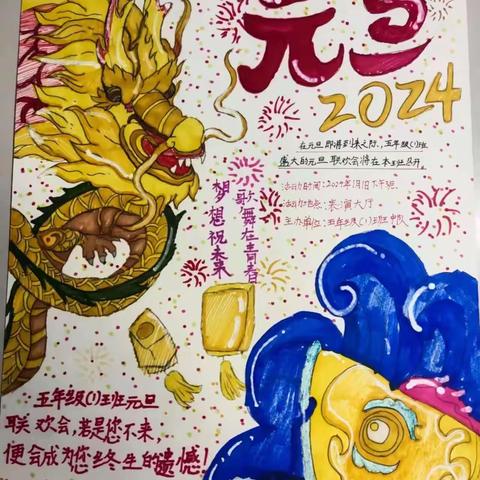 元旦
2024
在元旦即将到来之际,五年级(1)班
盛大的元旦联欢会将在本班召开。
活动时间:2024年1月1日下午
活动地点:表演大厅
主办单位:五年级(1)班中队
歌舞在青春
梦想祝未来
五年级(1)班元旦
联欢会,若是您不来,
便会成为您终生的遗憾!